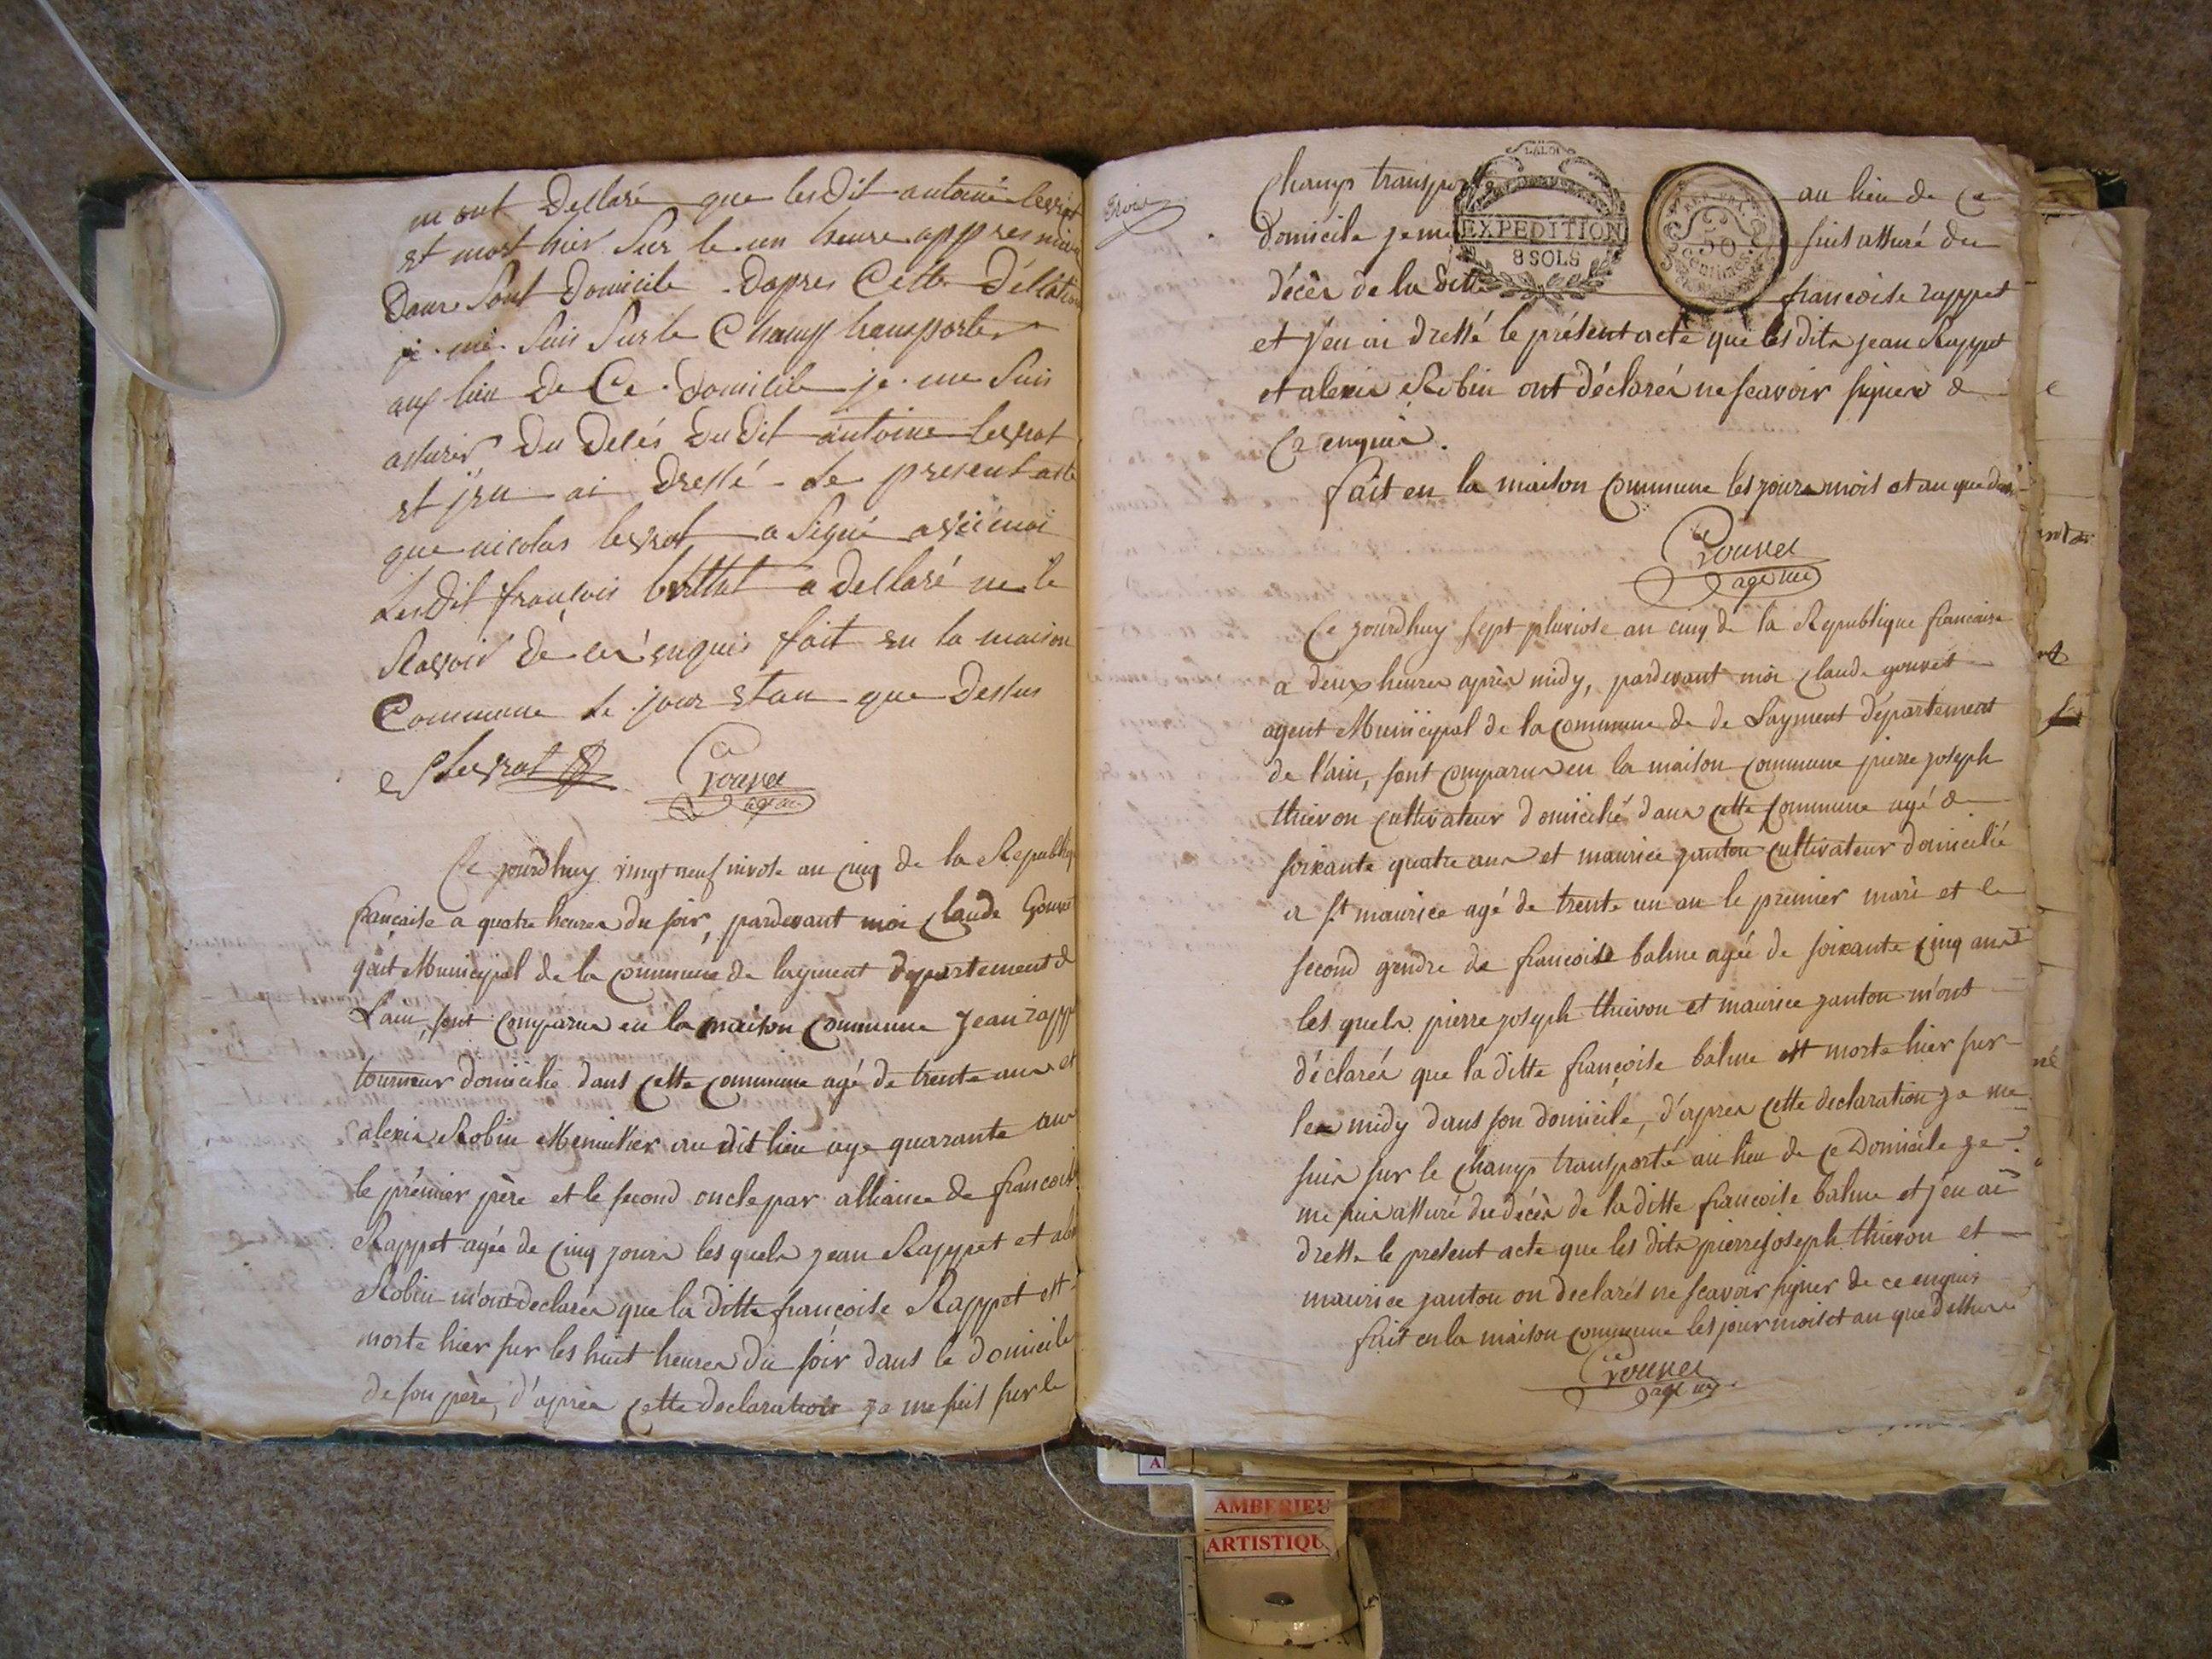 m'ont Dellaré que lesdit antoine levrat
et mort hier Sur le un heure appres midi
Dans Sont Domicile Dapres Cette Déllation
je me Suis Sur le Champ transporter
aux lieu De Ce Domicile je me Suis
assurer Du Delés Du Dit antoine levrat
et j'en ai Dressé le present acte
que nicolas levrat a Signé avec moi
Lesdit françois berthet a Dellaré ne le
Scavoir de ce enquis fait en la maison
Commune le jour et an que Dessus
Levrat Gouvet
agt
Ce jourdhuy vingt neuf nivose an cinq de la Republiq
française a quatre heures du soir, pardevant moi Claude Gouvet
gent Municipal de la commune de layment departement d
L'ain, sont comparus en la maison commune Jean rapp
tourneur domicilié dans cette commune agé de trente ans et
alexis Robin Menuisier au dit lieu age quarante ans
le prémier père et le second oncle par alliance de francoise
Rappet agée de cinq jours les quels jean Rappet et ale
Robin m'ont declarés que la ditte francoise Rappet est
morte hier sur les huit heures du soir dans le domicile
de son père, d'après cette declaration je me suis sur le
Champ transpor au lieu de ce
Domicile je me suis assuré du
décès de la ditte francoise rappet
et j'en ai dressé le présent acte que les dits jean Rappet
et alexis Robin ont déclarés ne scavoir signer de
ce enquis.
fait en la maison commune les jours mois et an que dess
LA LOI
EXPEDITION
8 SOLS
50
Centimes
Gouvet
agt
Ce jourdhuy sept pluviose an cinq de la Republique francaise
a deux heures après midy, pardevant moi claude gouvet
agent Municipal de la commune de de Layment département
de l'ain, sont comparus en la maison commune pierre joseph
thievon cultivateur domicilié dans cette commune agé de
soixante quatre ans et maurice janton cultivateur domicilié
a st maurice agé de trente un an le premier mari et le
second gendre de francoise balme agée de soixante cinq ans
les quels pierre joseph thievon et maurice janton m'ont
déclarés que la ditte françoise balme est morte hier sur
les midy dans son domicile, d'apres cette declaration je me
suis sur le champ transporté au lieu de ce Domicile je
me suis assuré du décès de la ditte francoise balme et j'en ai
dresse le present acte que les dits pierre joseph thievon et
maurice janton on declarés ne scavoir signer de ce enquis
fait en la maison commune les jour mois et an que dessus
Gouvet
agt
AMBERIEU
ARTISTIQU